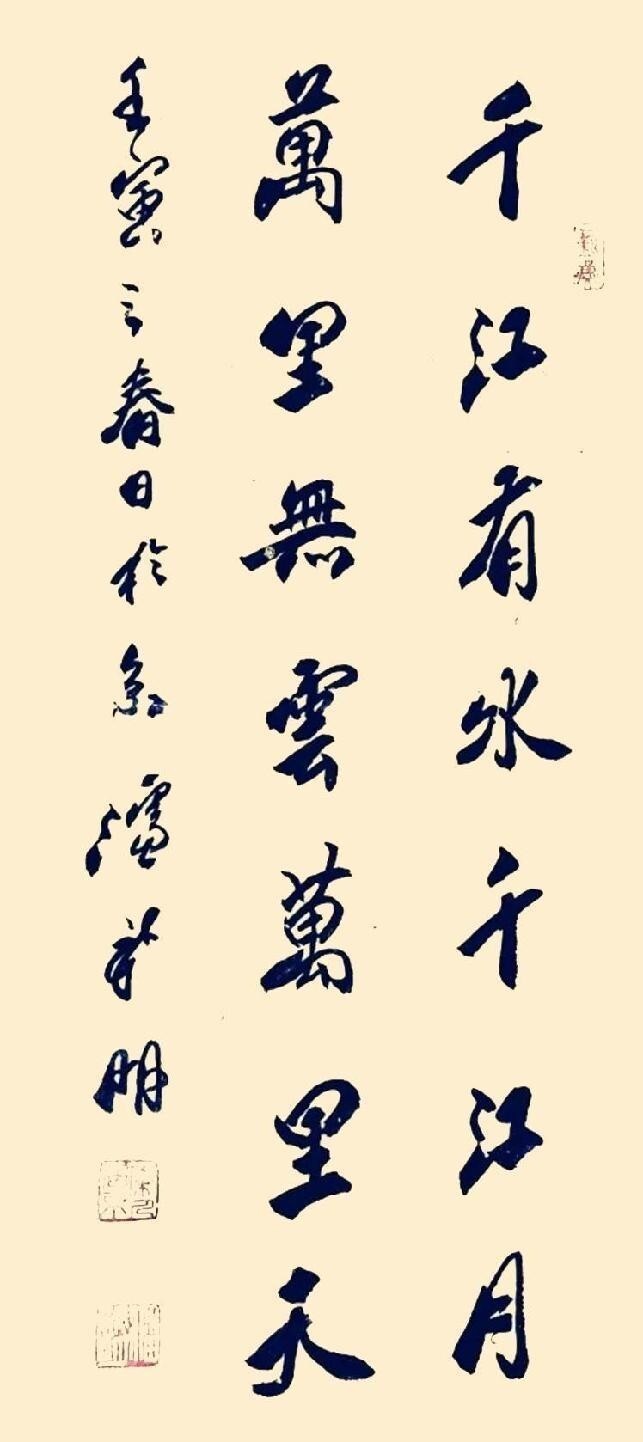 千江有水千江月
萬里無雲萬里天
壬寅之春日於京
明